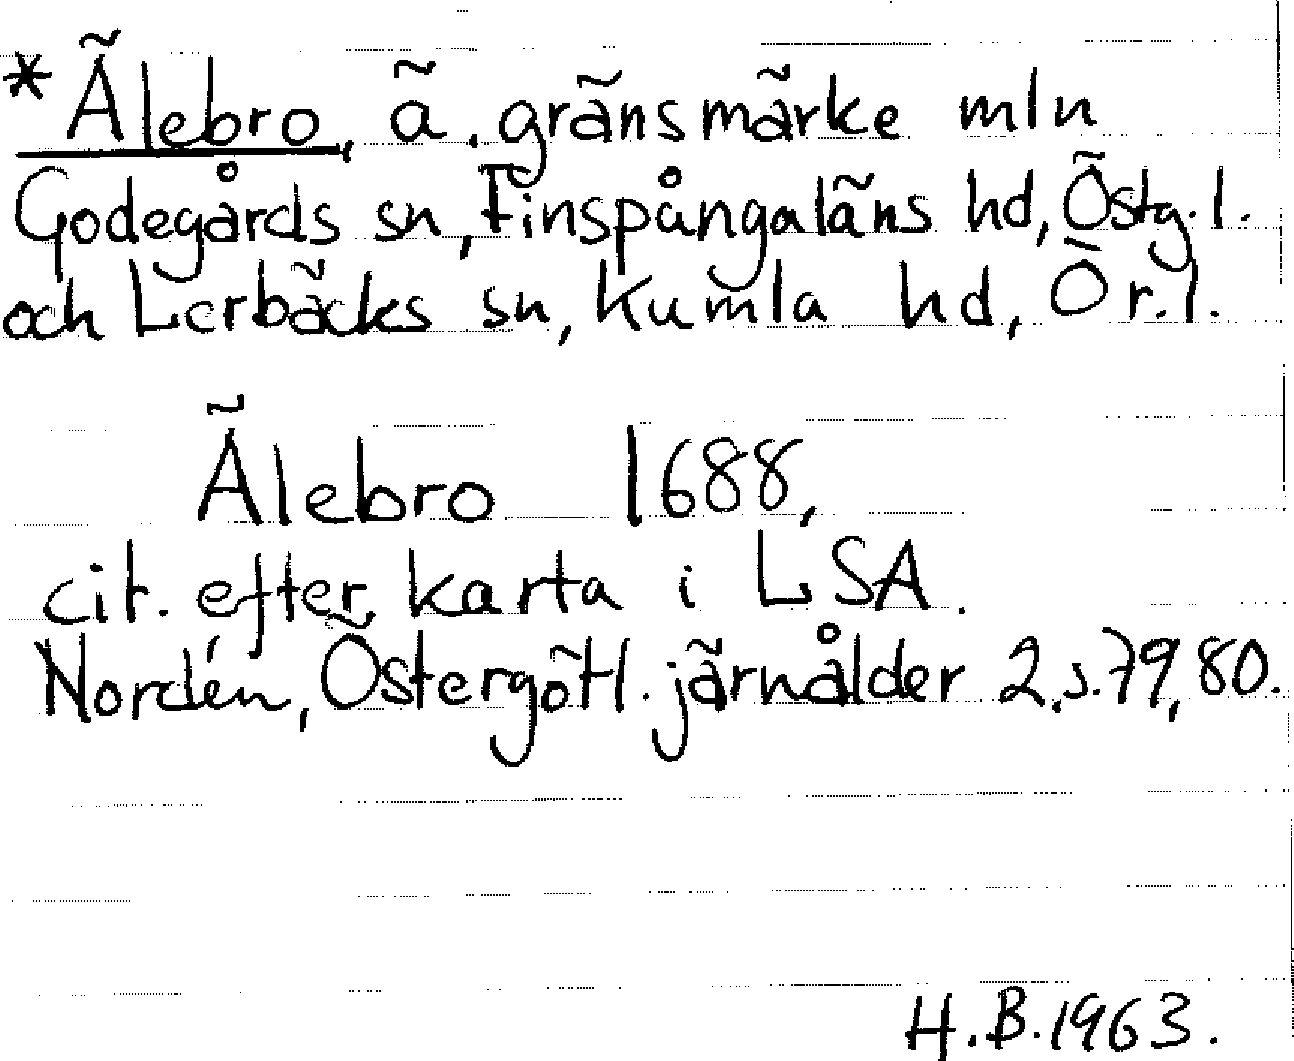 *Älebro, ä. gränsmärke mln
Godegårds sn, Finspångaläns hd, Östg. l.
och Lerbäcks sn, Kumla hd, Ör. l.
Älebro 1688,
cit. efter karta i LSA.
Nordén, Östergötl. järnålder 2, s. 79, 80.
H.B. 1963.